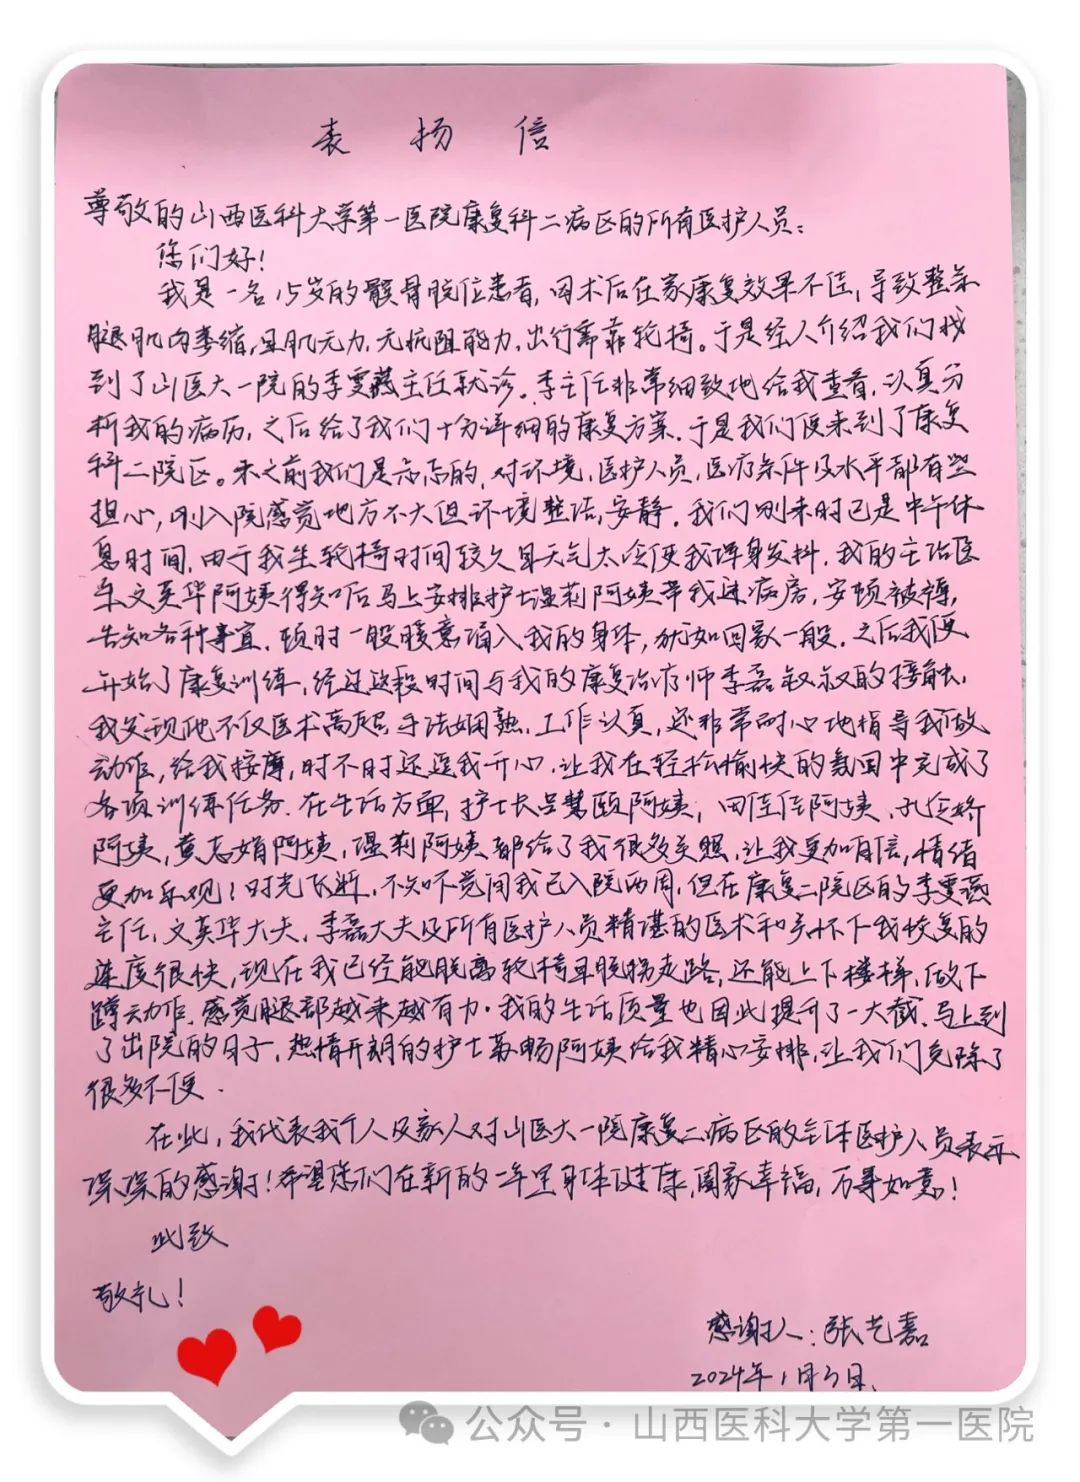 表 扬 信
尊敬的山西医科大学第一医院康复科二病区的所有医护人员：
您们好！
我是一名15岁的髌骨脱位患者，因术后在家康复效果不佳，导致整条
腿肌肉萎缩，且肌无力，无抗阻能力，出行需靠轮椅。于是经人介绍我们找
到了山医大一院的李雯燕主任就诊。李主任非常细致地给我查看，认真分
析我的病历，之后给了我们十分详细的康复方案，于是我们便来到了康复
科二院区。来之前我们是忐忑的，对环境，医护人员，医疗条件及水平都有些
担心，刚入院感觉地方不大但环境整洁，安静。我们刚来时已是中午休
息时间，由于我坐轮椅时间较久且天气太冷使我浑身发抖，我的主治医
生文英华阿姨得知后马上安排护士温莉阿姨带我进病房，安顿被褥，
告知各种事宜，顿时一股暖意涌入我的身体，犹如回家一般。之后我便
开始了康复训练，经过这段时间与我的康复治疗师李磊叔叔的接触，
我发现他不仅医术高超，手法娴熟，工作认真，还非常耐心地指导我做
动作，给我按摩，时不时还逗我开心，让我在轻松愉快的氛围中完成了
各项训练任务。在生活方面，护士长吕慧颐阿姨，田佳佳阿姨，孔金娇
阿姨，黄志娟阿姨，温莉阿姨都给了我很多关照，让我更加自信，情绪
更加乐观！时光飞逝，不知不觉间我已入院两周，但在康复二院区的李雯燕
主任，文英华大夫，李磊大夫及所有医护人员精湛的医术和关怀下我恢复的
速度很快，现在我已经能脱离轮椅且脱拐走路，还能上下楼梯，做下
蹲动作，感觉腿部越来越有力。我的生活质量也因此提升了一大截，马上到
了出院的日子，热情开朗的护士苏畅阿姨给我精心安排，让我们免除了
很多不便。
在此，我代表我个人及家人对山医大一院康复二病区的全体医护人员表示
深深的感谢！希望您们在新的一年里身体健康，阖家幸福，万事如意！
此致
敬礼！
感谢人：张艺嘉
2024年1月3日.
公众号 · 山西医科大学第一医院